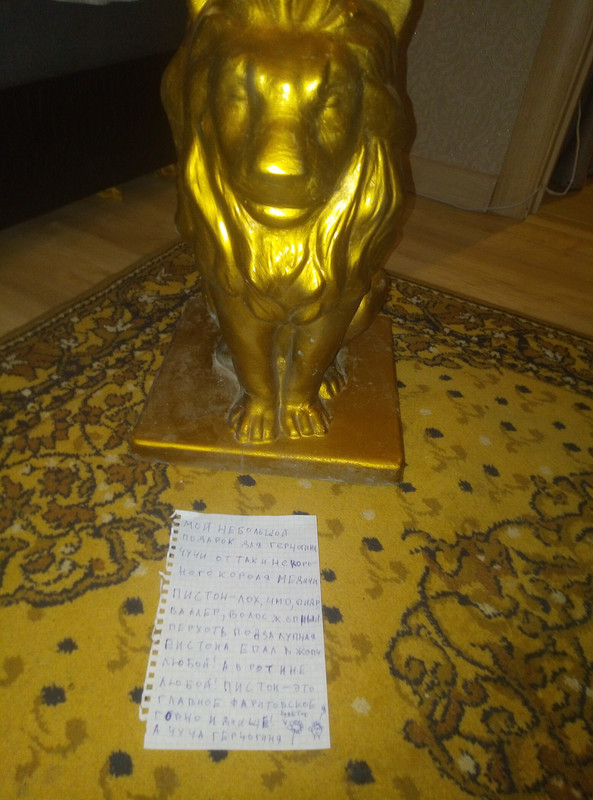 МОЙ НЕБОЛЬШОЙ
ПОДАРОК ДЛЯ ГЕРЦОГИНИ
ЧУЧИ ОТ ТАКИ НЕКОРО-
НОГО КОРОЛЯ МЕДИЧИ
ПИСТОН-ЛОХ, ЧМО, ПИДР
ВАФЛЕР, ВОЛОС ЖОПНЫЙ
ПЕРХОТЬ ПОДЗАЛУПНАЯ
ПИСТОНА ЕПАЛ В ЖОПУ
ЛЮБОЙ! А В РОТ И НЕ
ЛЮБОЙ! ПИСТОН-ЭТО
ГЛАВНОЕ ФАРИТОВСКОЕ
ГОВНО И ДНИЩЕ!
А ЧУЧА ГЕРЦОГИНЯ!